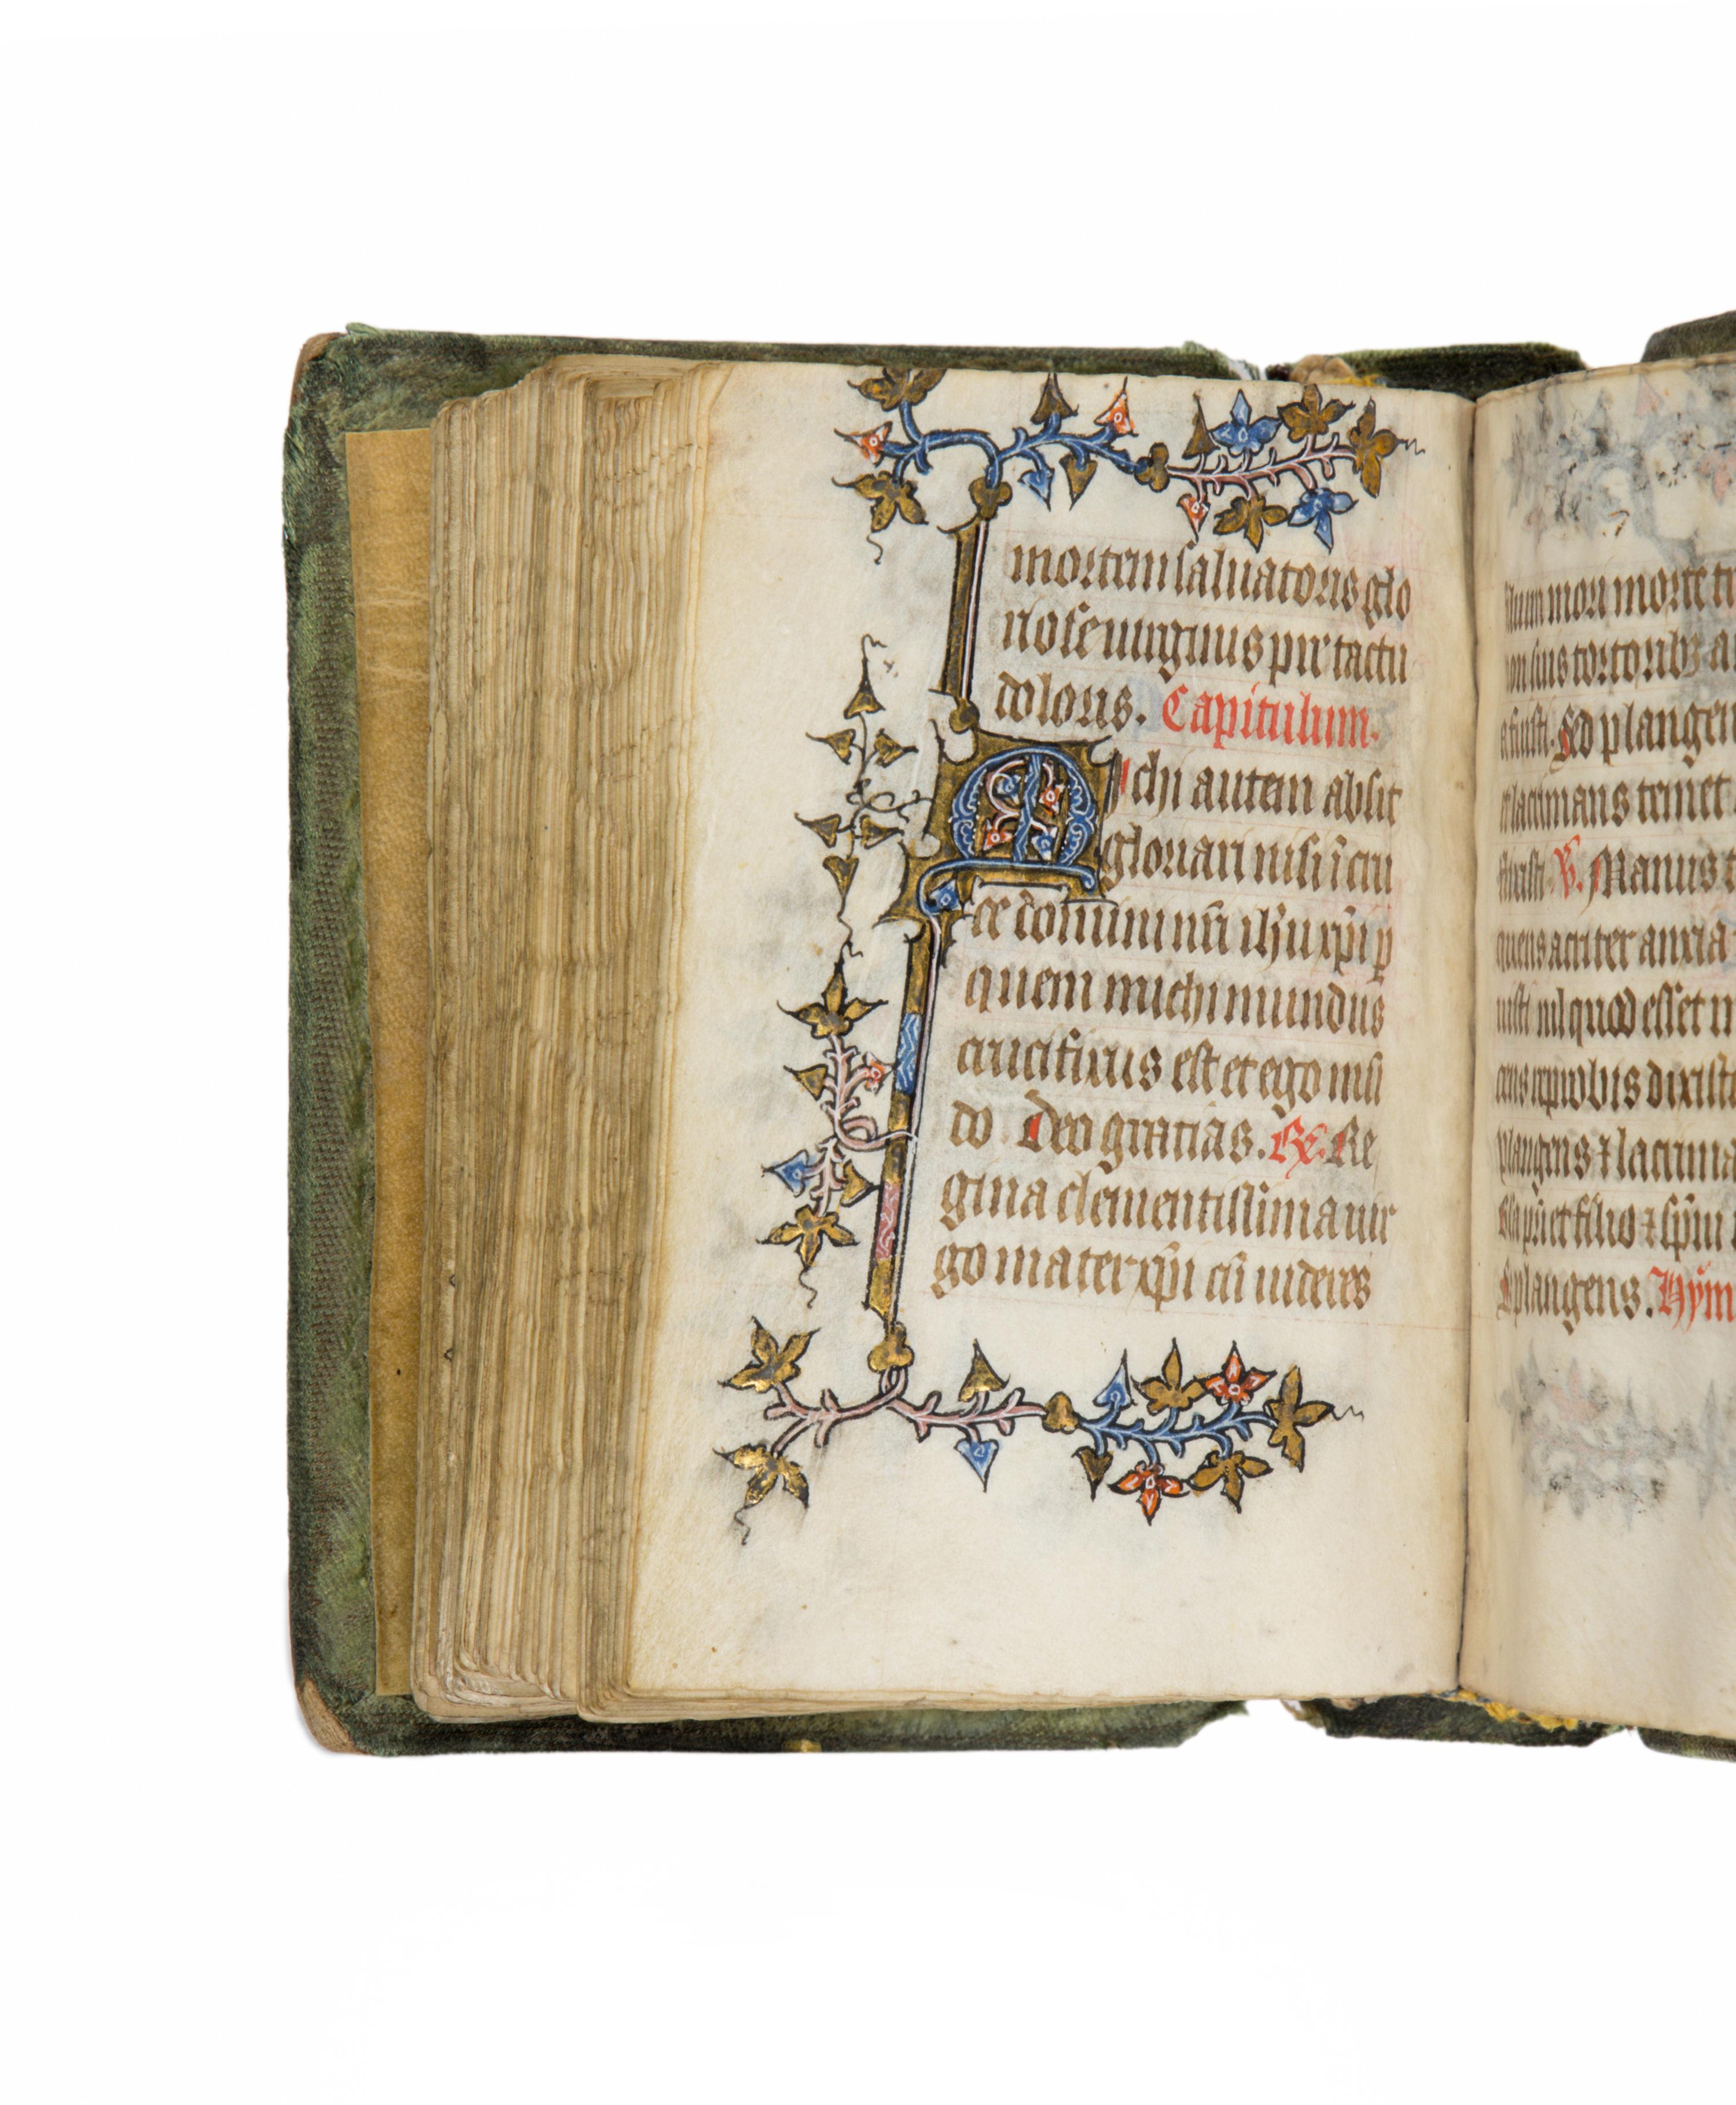 mortem saluatoris glo
riose uirginis pir tactu
doloris. Capitulum.
Michi autem absit
gloriari nisi ĩ cru
ce domini nr̃i ihũ xp̃i ꝑ
quem michi mundus
crucifixus est et ego mũ
do Deo gratias. R̷. Re
gina clementissima uir
go mater xp̃i cũ uideres
filium mori morte
non suis tortoribꝫ
Sed plangen
lacrimans
V̷. Manus
quens acriter anxia
nil quod esset
probus dixisti
plangens ⁊ lacrima
pr̃i et filio ⁊ sp̃ui
plangens. Hym